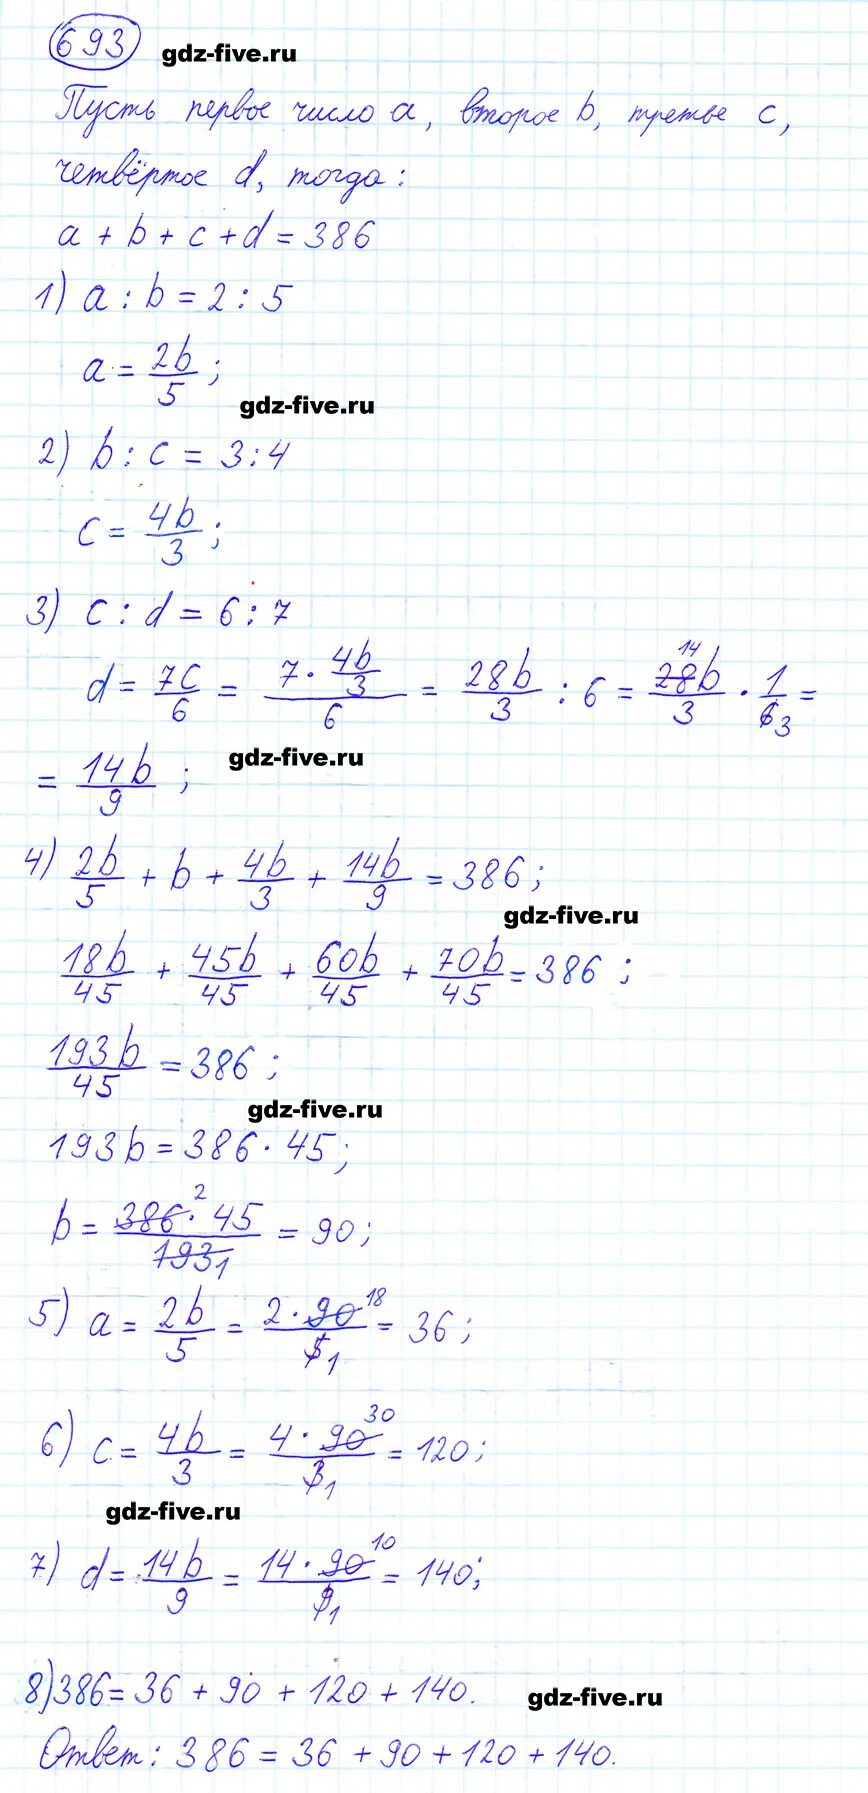 693
gdz-five.ru
Пусть первое число a, второе b, третье c,
четвёртое d, тогда:
a + b + c + d = 386
1) a : b = 2 : 5
a = 2b/5 ;
gdz-five.ru
2) b : c = 3 : 4
c = 4b/3 ;
3) c : d = 6 : 7
d = 7c/6 = (7 · 4b/3)/6 = 28b/3 : 6 = 14 28b/3 · 1/6 3 =
= 14b/9 ;
gdz-five.ru
4) 2b/5 + b + 4b/3 + 14b/9 = 386;
gdz-five.ru
18b/45 + 45b/45 + 60b/45 + 70b/45 = 386 ;
193b/45 = 386 ;
gdz-five.ru
193b = 386 · 45;
b = 386 2 · 45/193 1 = 90;
5) a = 2b/5 = 2 · 90 18/5 1 = 36;
6) c = 4b/3 = 4 · 90 30/3 1 = 120;
gdz-five.ru
7) d = 14b/9 = 14 · 90 10/9 1 = 140;
8) 386 = 36 + 90 + 120 + 140.
gdz-five.ru
Ответ: 386 = 36 + 90 + 120 + 140.